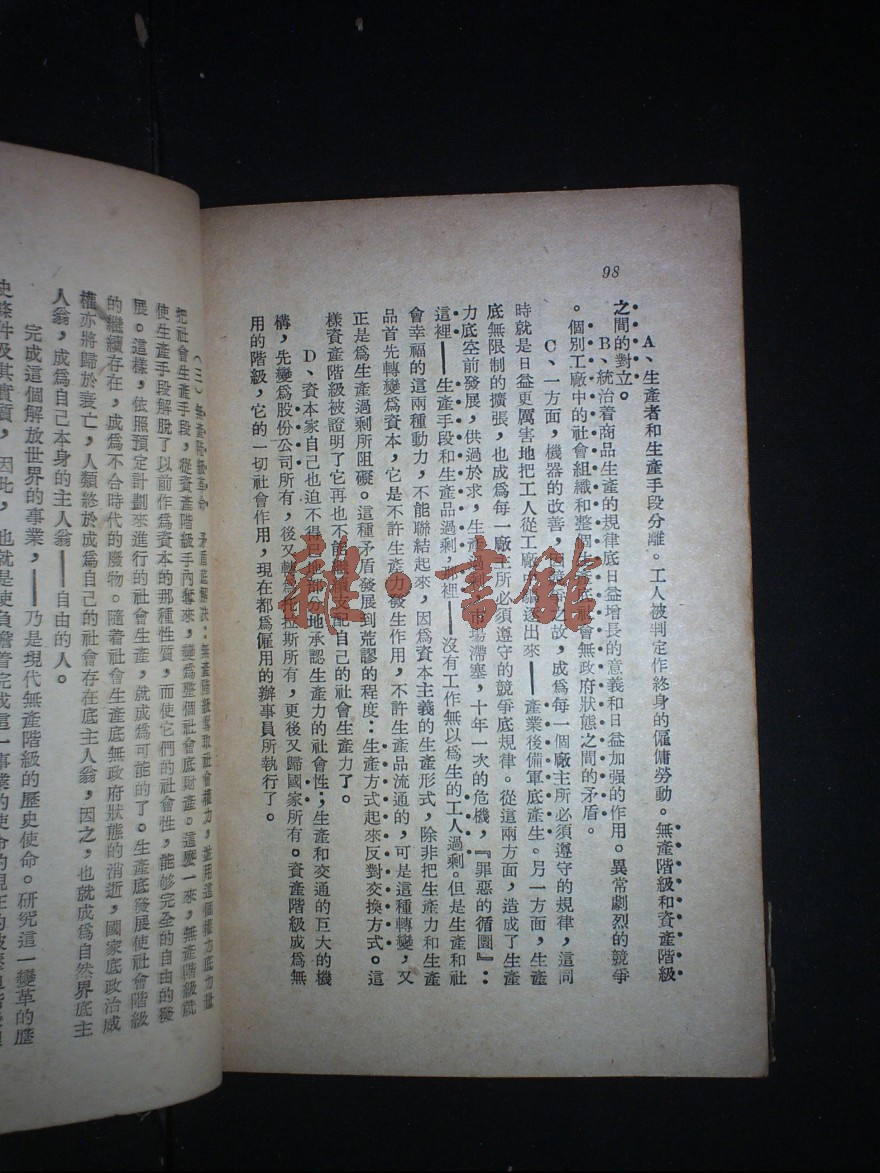 98
A、生產者和生產手段分離。工人被判定作終身的僱傭勞動。無產階級和資產階級
之間的對立。
B、統治着商品生產的規律底日益增長的意義和日益加强的作用。異常劇烈的競爭
。個別工廠中的社會組織和整個生產底社會無政府狀態之間的矛盾。
C、一方面，機器的改善，因競爭之故，成爲每一個廠主所必須遵守的規律，這同
時就是日益更厲害地把工人從工廠中排逐出來——產業後備軍底產生。另一方面，生產
底無限制的擴張，也成爲每一廠主所必須遵守的競爭底規律。從這兩方面，造成了生產
力底空前發展，供過於求，生產過剩，市場滯塞，十年一次的危機，『罪惡的循圜』：
這裡——生產手段和生產品過剩，那裡——沒有工作無以爲生的工人過剩。但是生產和社
會幸福的這兩種動力，不能聯結起來，因爲資本主義的生產形式，除非把生產力和生產
品首先轉變爲資本，它是不許生產力發生作用，不許生產品流通的，可是這種轉變，又
正是爲生產過剩所阻礙。這種矛盾發展到荒謬的程度：生產方式起來反對交換方式。這
樣資產階級被證明了它再也不能繼續支配自己的社會生產力了。
D、資本家自己也迫不得已地部分地承認生產力的社會性；生產和交通的巨大的機
構，先變爲股份公司所有，後又轉爲托拉斯所有，更後又歸國家所有。資產階級成爲無
用的階級，它的一切社會作用，現在都爲僱用的辦事員所執行了。
（三）無產階級革命 矛盾底解決：無產階級奪取社會權力，並用這個權力底力量
把社會生產手段，從資產階級手內奪來，變爲整個社會底財產。這麼一來，無產階級就
使生產手段解脫了以前作爲資本的那種性質，而使它們的社會性，能够完全的自由的發
展。這樣，依照預定計劃來進行的社會生產，就成爲可能的了。生產底發展使社會階級
的繼續存在，成爲不合時代的廢物。隨着社會生產底無政府狀態的消逝，國家底政治威
權亦將歸於衰亡，人類終於成爲自己的社會存在底主人翁，因之，也就成爲自然界底主
人翁，成爲自己本身的主人翁——自由的人。
完成這個解放世界的事業，——乃是現代無產階級的歷史使命。研究這一變革的歷
史條件及其實質，因此，也就是使負擔着完成這一事業的使命的現在的被壓迫階級
雜·書館